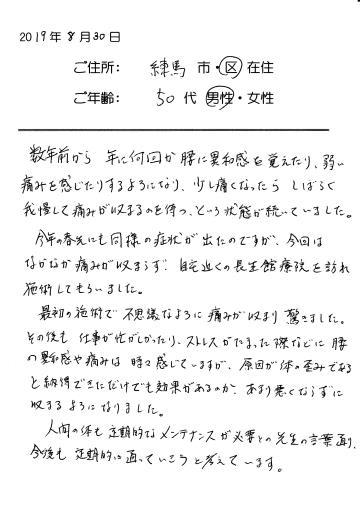 2019年 8月30日
ご住所: 練馬 市・区 在住
ご年齢: 50 代 男性・女性
数年前から 年に何回か 腰に異和感を覚えたり、弱い
痛みを感じたりするようになり、少し痛くなったら しばらく
我慢して痛みが収まるのを待つ、という状態が続いていました。
今年の春先にも同様の症状が出たのですが、今回は
なかなか痛みが収まらず、自宅近くの長生館療院を訪れ
施術してもらいました。
最初の施術で 不思議なように 痛みが収まり 驚きました。
その後も 仕事が忙がしかったり、ストレスがたまった際などに 腰
の異和感や痛みは 時々感じていますが、原因が体の歪みである
と納得できただけでも効果があるのか、あまり悪くならずに
収まるようになりました。
人間の体も 定期的なメンテナンスが必要との先生の言葉通り、
今後も 定期的に通っていこうと考えています。